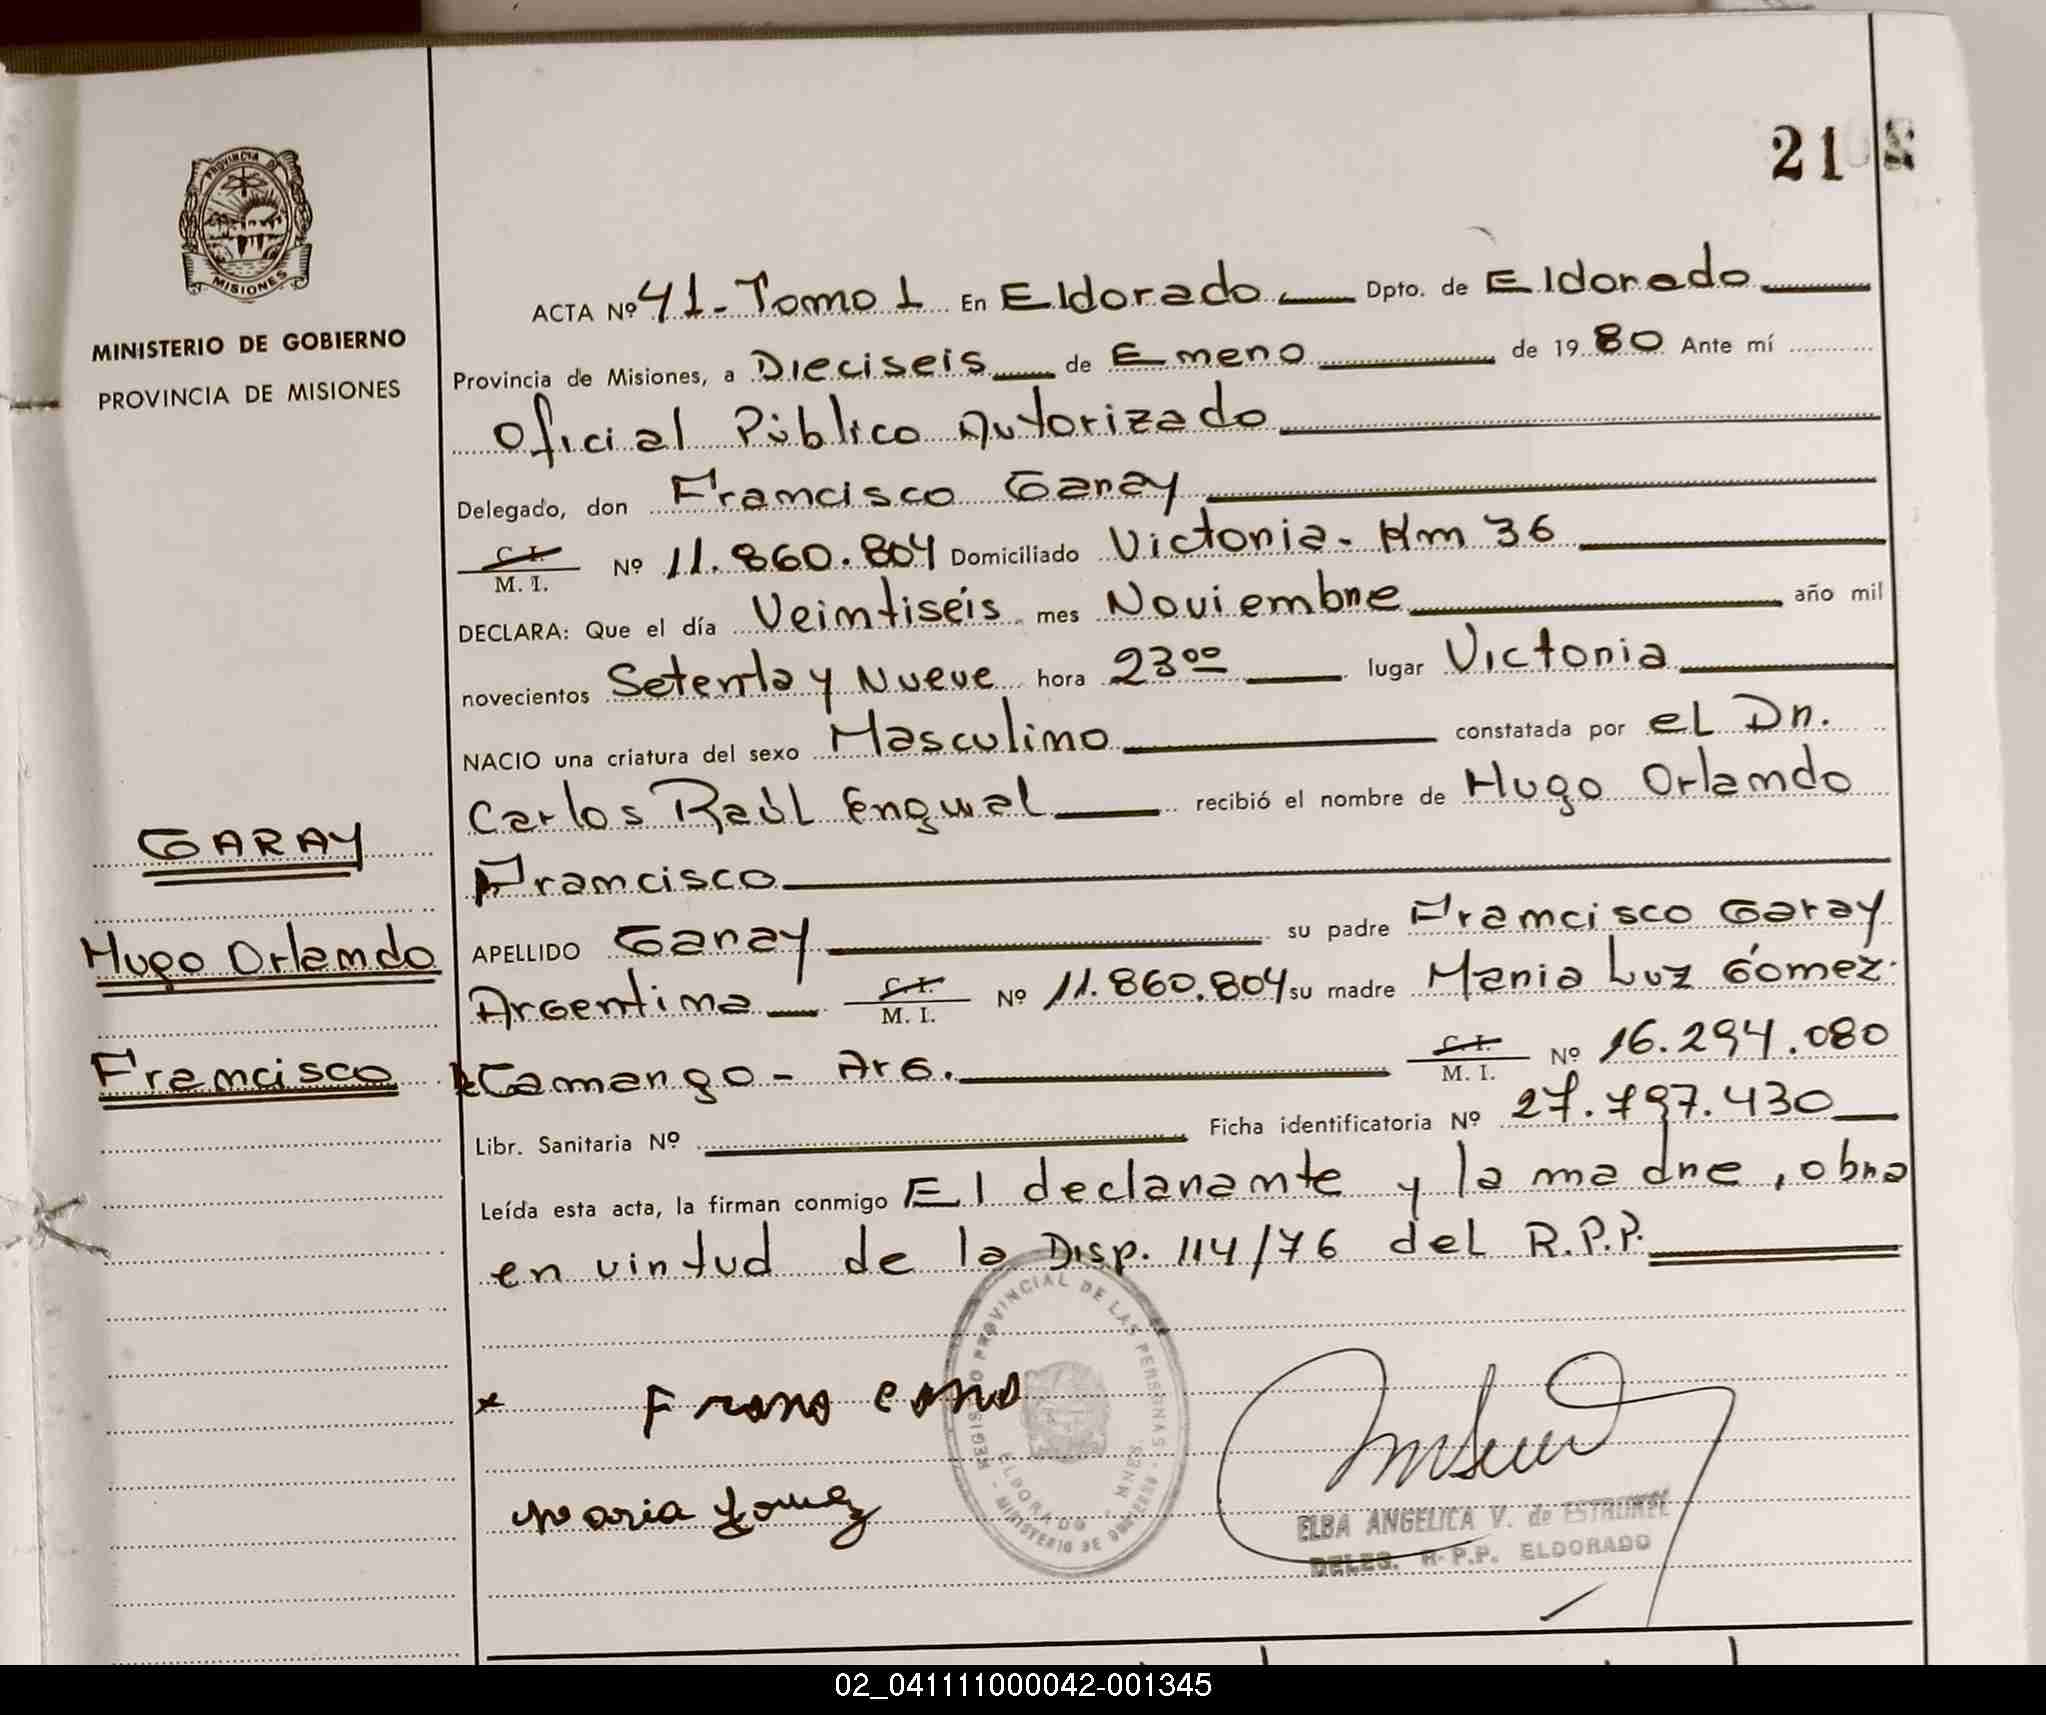 21
PROVINCIA DE
MISIONES
MINISTERIO DE GOBIERNO
PROVINCIA DE MISIONES
ACTA Nº 41 - Tomo 1 En Eldorado Dpto. de Eldorado
Provincia de Misiones, a Dieciseis de Enero de 1980 Ante mí
Oficial Público Autorizado
Delegado, don Francisco Garay
C. I.
M. I. Nº 11.860.804 Domiciliado Victoria - Km 36
DECLARA: Que el día Veintiséis mes Noviembre año mil
novecientos Setenta y Nueve hora 23⁰⁰ lugar Victoria
NACIO una criatura del sexo Masculino constatada por el Dr.
Carlos Raúl recibió el nombre de Hugo Orlando
Francisco
APELLIDO Garay su padre Francisco Garay
Argentina C. I. M. I. Nº 11.860.804 su madre Maria Luz Gómez
Camargo - Arg. C. I. M. I. Nº 16.294.080
Libr. Sanitaria Nº Ficha identificatoria Nº 27.797.430
Leída esta acta, la firman conmigo El declarante y la madre, obra
en virtud de la Disp. 114/76 del R.P.P.
GARAY
Hugo Orlando
Francisco
REGISTRO PROVINCIAL DE LAS PERSONAS - MINISTERIO DE GOBIERNO -
ELDORADO - MNES.
Maria Gomez
ELBA ANGELICA V. de
DELEG. R.P.P. ELDORADO
02_041111000042-001345